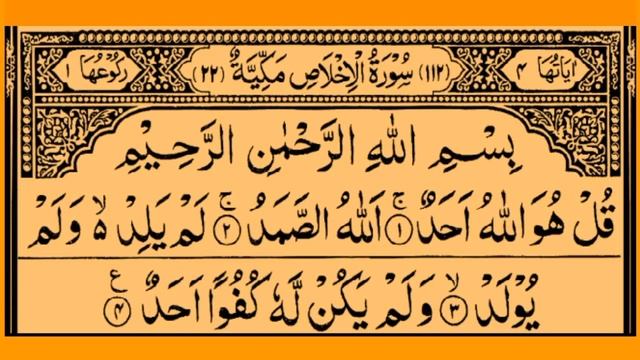 اٰيَاتُهَا ٤ (١١٢) سُوْرَةُ الْاِخْلَاصِ مَكِّيَّةٌ (٢٢) رُكُوْعُهَا ١
بِسْمِ اللّٰهِ الرَّحْمٰنِ الرَّحِيْمِ
قُلْ هُوَ اللّٰهُ اَحَدٌ ۚ ﴿١﴾ اَللّٰهُ الصَّمَدُ ۚ ﴿٢﴾ لَمْ يَلِدْ ۙ۬ وَلَمْ
يُوْلَدْ ۙ ﴿٣﴾ وَلَمْ يَكُنْ لَّهٗ كُفُوًا اَحَدٌ ࣖ ﴿٤﴾